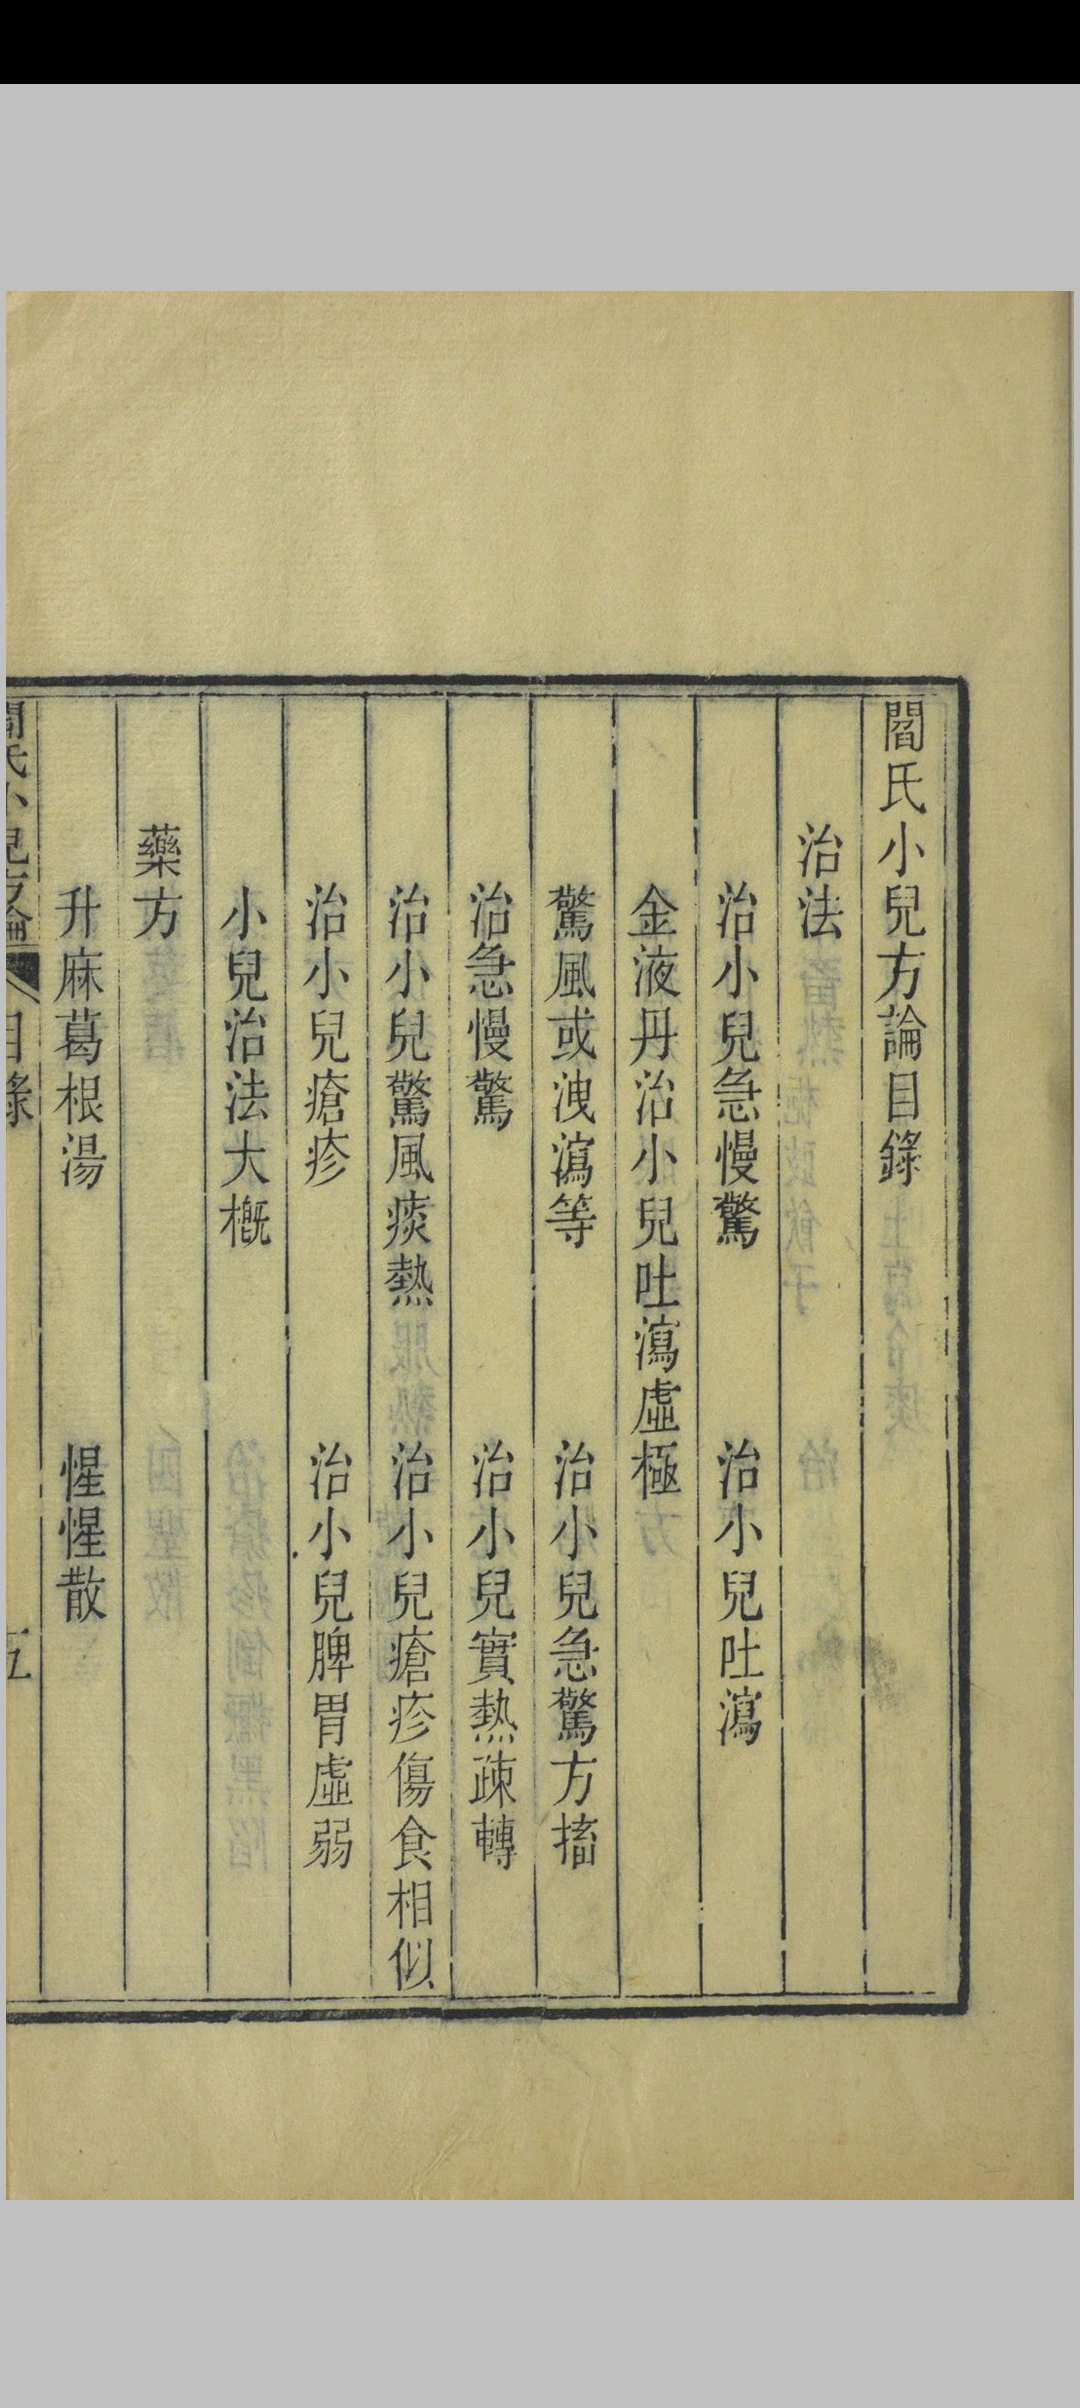 閻氏小兒方論目錄
治法
治小兒急慢驚　治小兒吐瀉
金液丹治小兒吐瀉虛極
驚風或洩瀉等　治小兒急驚方搐
治急慢驚　治小兒實熱疎轉
治小兒驚風痰熱　治小兒瘡疹傷食相似
治小兒瘡疹　治小兒脾胃虛弱
小兒治法大概
藥方
升麻葛根湯　惺惺散
閻氏小兒方論　目錄　五